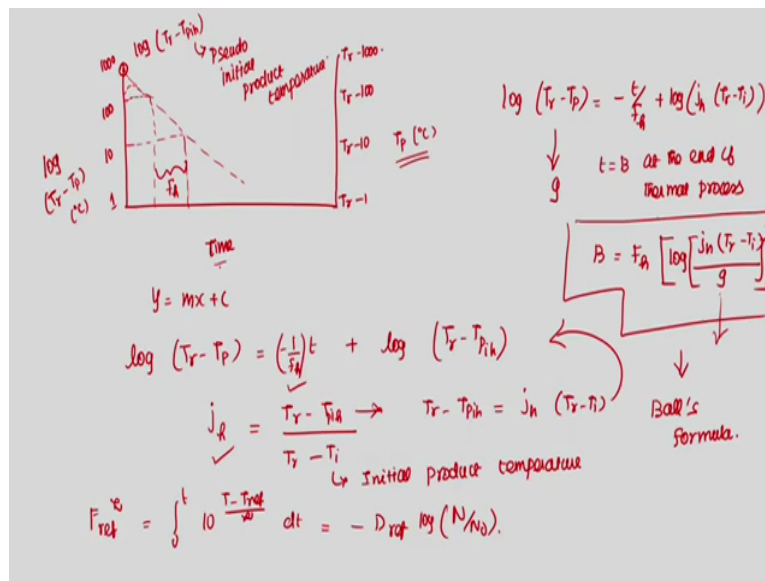 log (Tr - Tpih)
↳ pseudo
initial
product
temperature
1000
100
10
1
log
(Tr - Tp)
(°C)
fh
Time
Tr-1000
Tr-100
Tr-10
Tr-1
Tp (°C)
y = mx + c
log (Tr - Tp) = (-1/fh) t + log (Tr - Tpih)
jh = (Tr - Tpih)/(Tr - Ti) → Tr - Tpih = jh (Tr - Ti)
↳ Initial product temperature
F^z_ref = ∫₀^t 10^((T - Tref)/z) dt = - Dref log (N/N0).
log (Tr - Tp) = - t/fh + log (jh (Tr - Ti))
↓
g
t = B at the end of
thermal process
B = fh [log [jh (Tr - Ti)/g]]
↓
Ball's
formula.